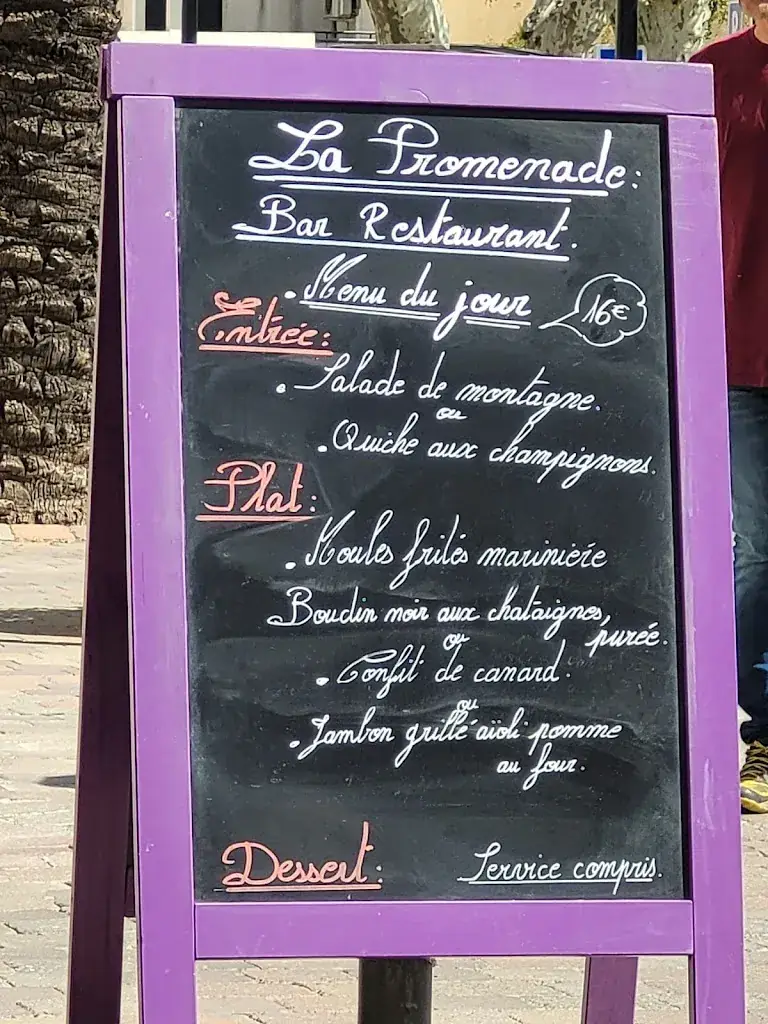 La Promenade:
Bar Restaurant.
. Menu du jour 16€
Entrée:
. Salade de montagne.
ou
. Quiche aux champignons.
Plat:
. Moules frites marinière
Boudin noir aux chataignes,
purée.
ou
. Confit de canard.
ou
. Jambon grillé aïoli pomme
au four.
Dessert: Service compris.